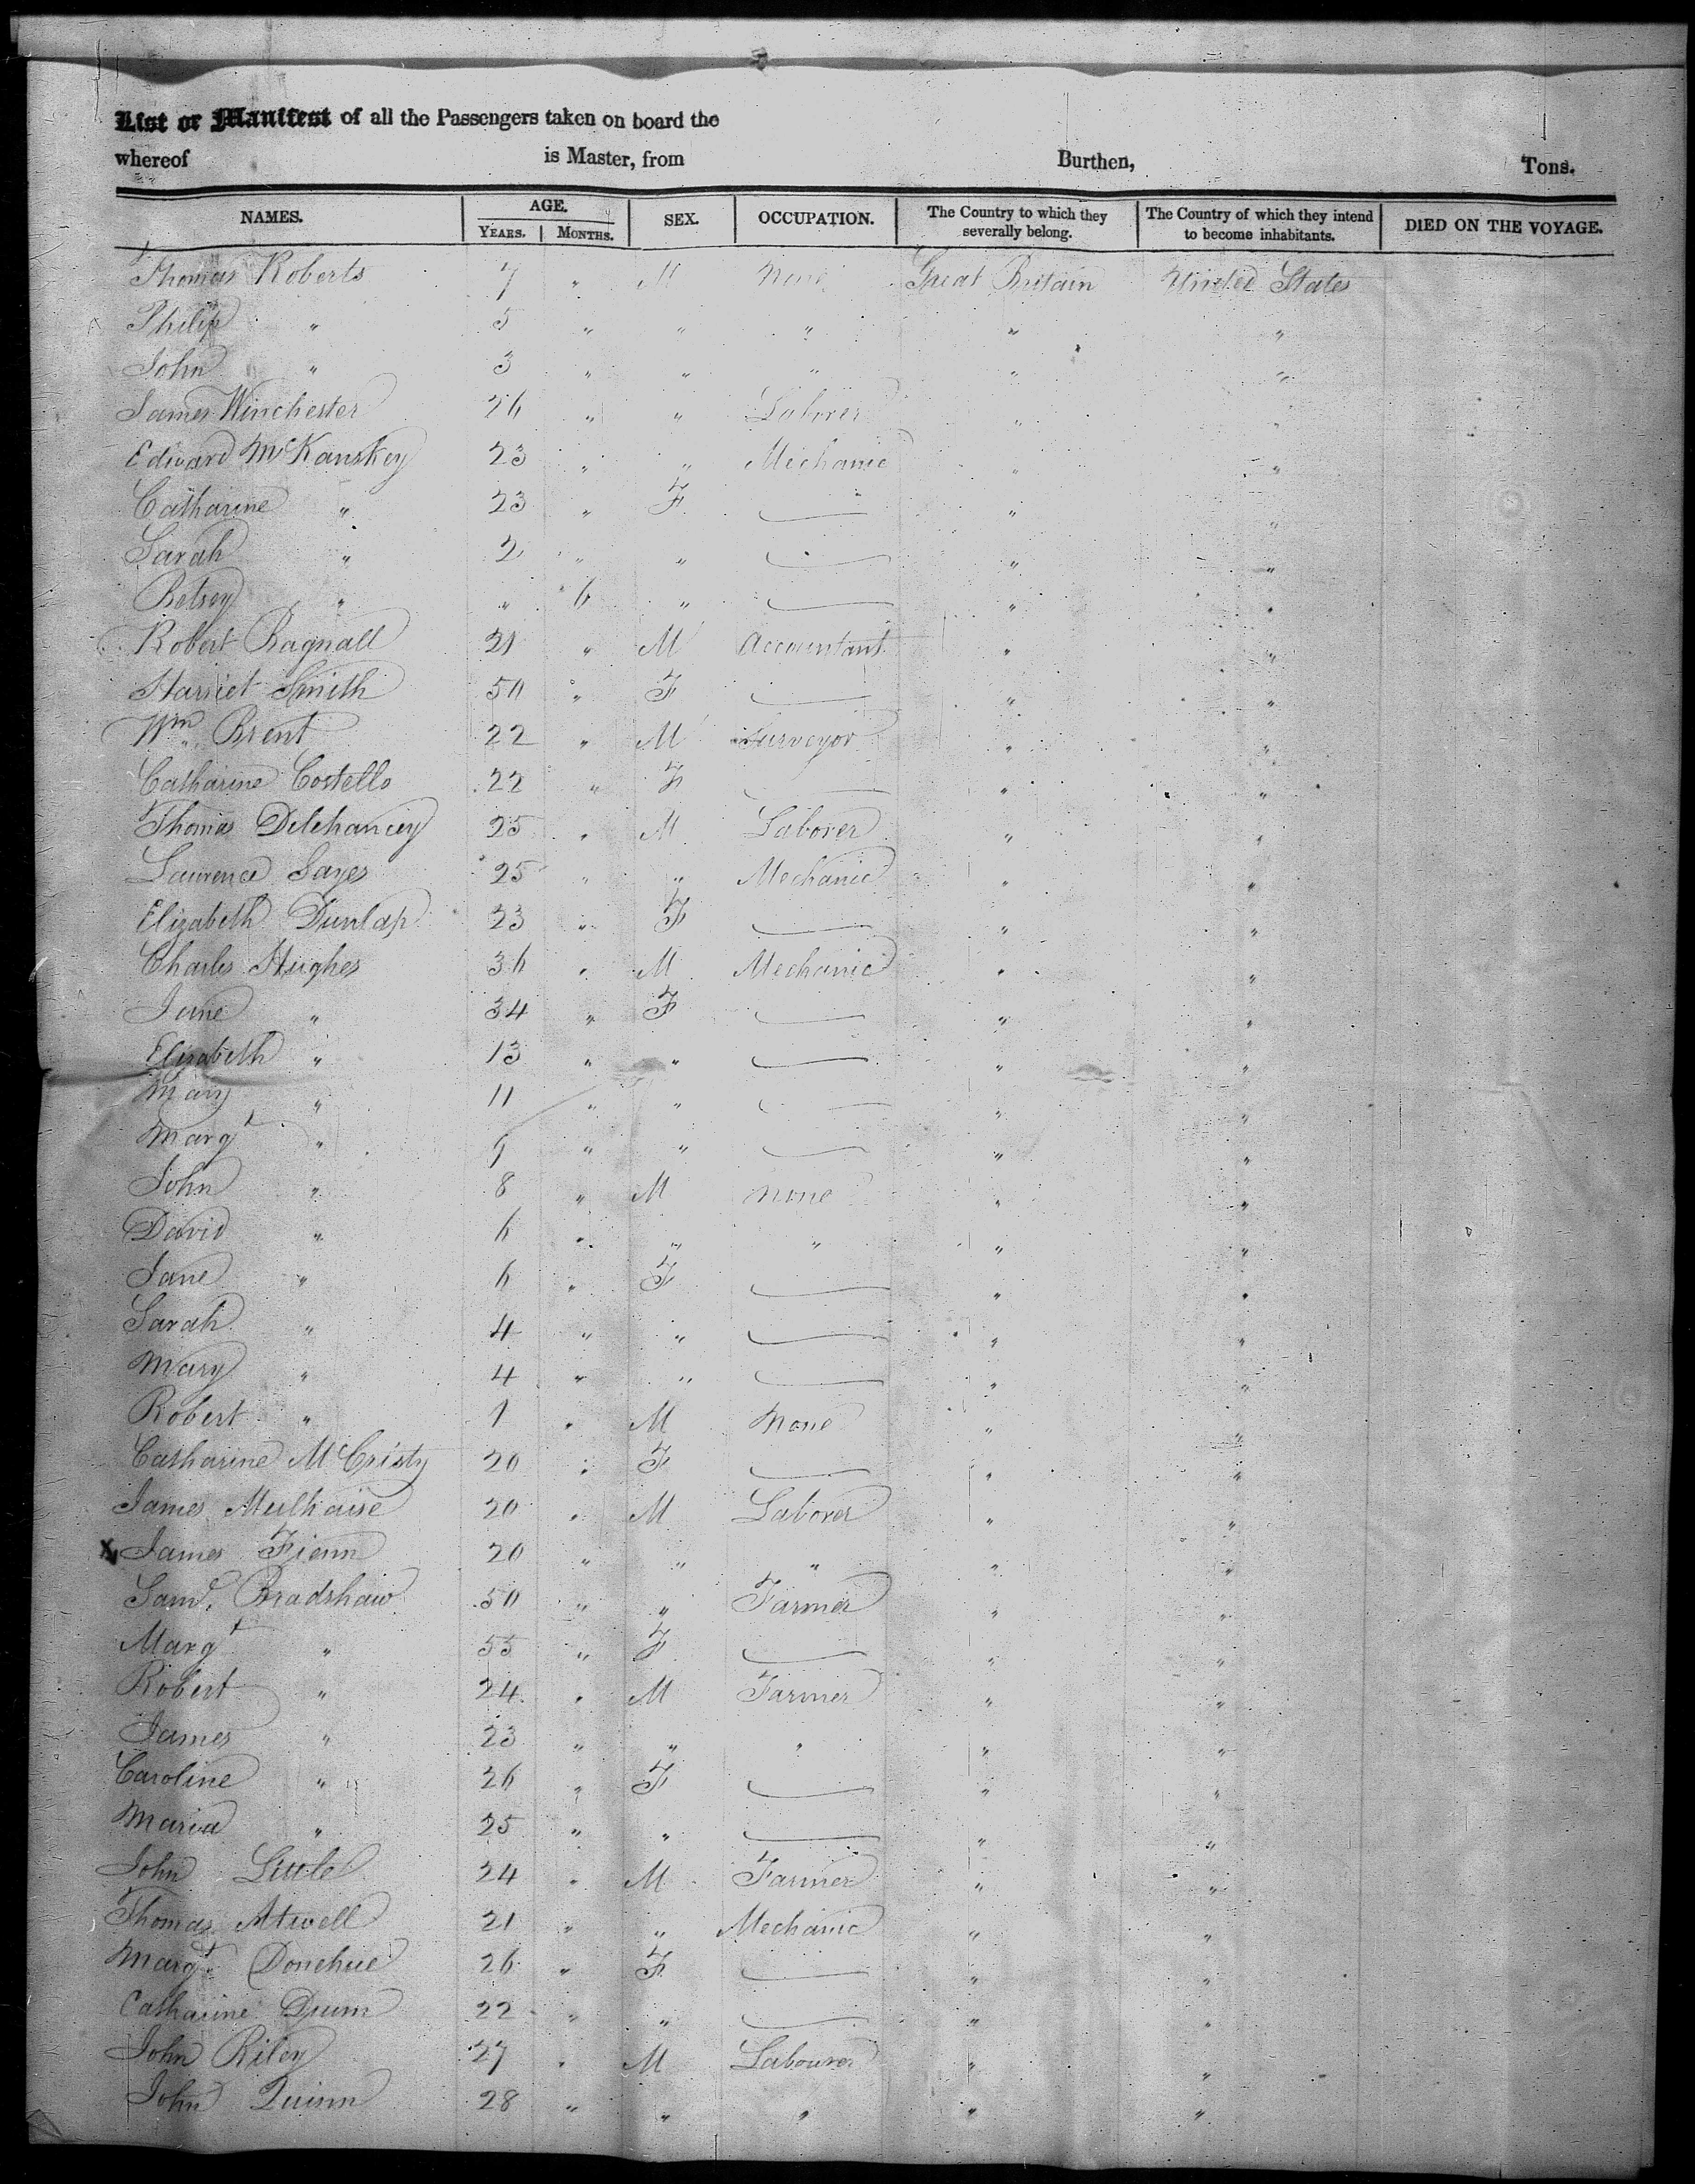 List or Manifest of all the Passengers taken on board the
whereof is Master, from Burthen, Tons.
NAMES. AGE. SEX. OCCUPATION. The Country to which they severally belong. The Country of which they intend to become inhabitants. DIED ON THE VOYAGE.
YEARS. MONTHS.
Thomas Roberts 7 " M None Great Britain United States
Philip " 5 " " " " "
John " 3 " " " " "
James Winchester 26 " " Laborer " "
Edward McKanskey 23 " " Mechanic " "
Catharine " 23 " F — " "
Sarah " 2 " " — " "
Betsey " " 6 " — " "
Robert Bagnall 21 " M Accountant " "
Harriet Smith 50 " F — " "
Wm Brent 22 " M Surveyor " "
Catharine Costello 22 " F — " "
Thomas Delehancey 25 " M Laborer " "
Laurence Sayes 25 " " Mechanic " "
Elizabeth Dunlap 23 " F — " "
Charles Hughes 36 " M Mechanic " "
Jane " 34 " F — " "
Elizabeth " 13 " " — " "
Mary " 11 " " — " "
Margt " 9 " " — " "
John " 8 " M None " "
David " 6 " " " " "
Jane " 6 " F — " "
Sarah " 4 " " — " "
Mary " 4 " " — " "
Robert " 1 " M None " "
Catharine McCristy 20 " F — " "
James Mulhaise 20 " M Laborer " "
X James 20 " " " " "
Saml. Bradshaw 50 " " Farmer " "
Margt " 55 " F — " "
Robert " 24 " M Farmer " "
James " 23 " " " " "
Caroline " 26 " F — " "
Maria " 25 " " — " "
John Little 24 " M Farmer " "
Thomas Atwell 21 " " Mechanic " "
Margt Donehue 26 " F — " "
Catharine Dunn 22 " " — " "
John Riley 27 " M Labourer " "
John Quinn 28 " " " " "